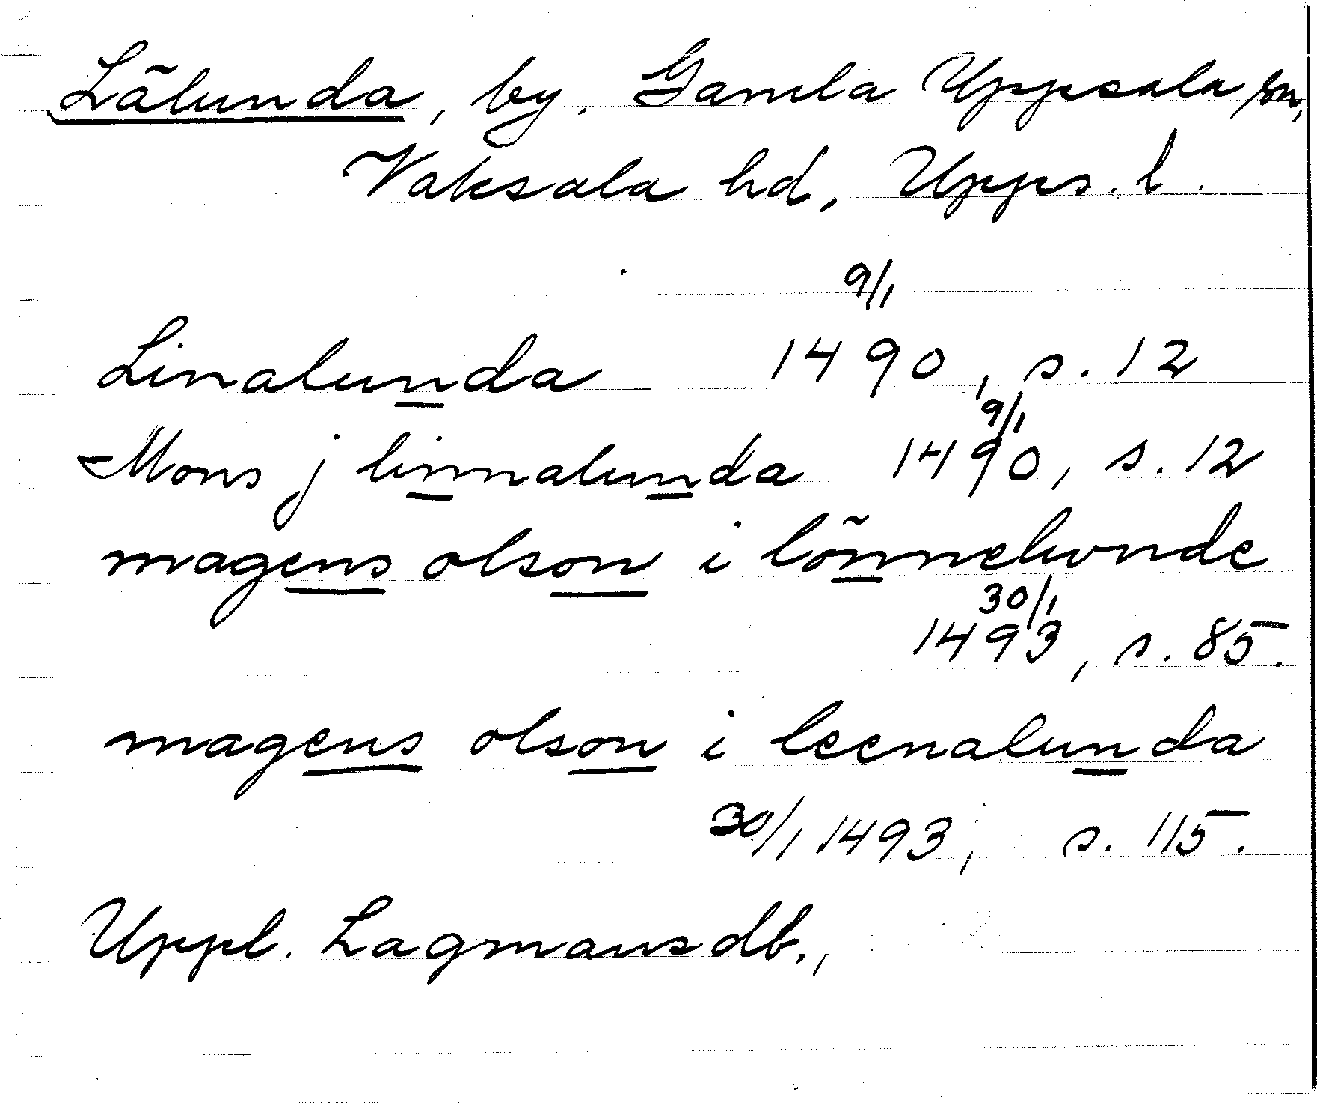 Lãlunda, by, Gamla Uppsala sn,
Vaksala hd, Upps. l.
9/1
Linalunda 1490, s. 12
9/1
Mons j linnalunda 1490, s. 12
magens olson i lõnnelunde
30/1
1493, s. 85.
magens olson i leenalunda
30/1 1493, s. 115.
Uppl. Lagmansdb.,